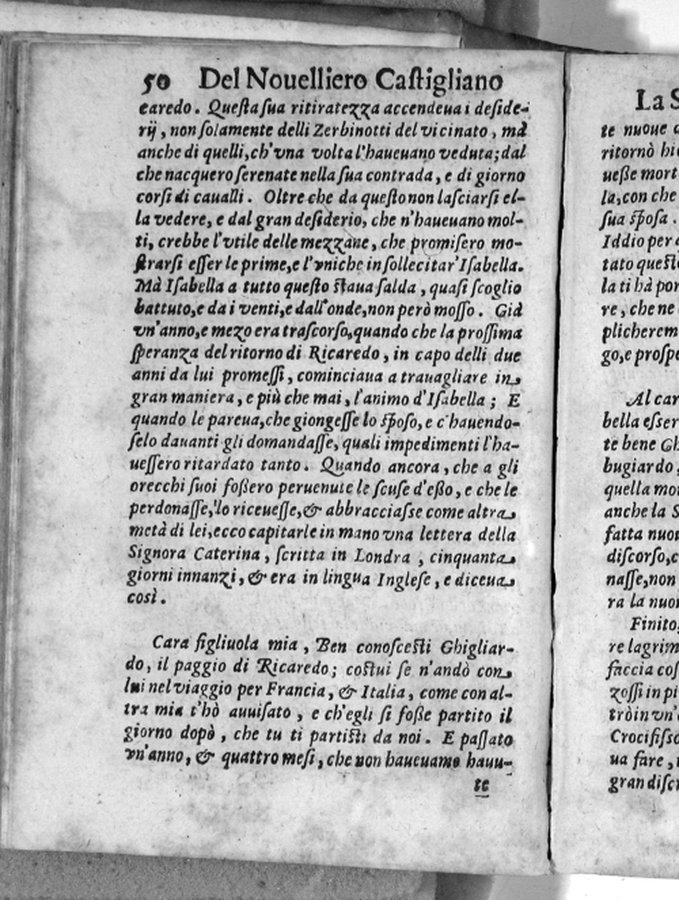 50 Del Nouelliero Castigliano
caredo. Questa sua ritiratezza accendeua i deside-
rij, non solamente delli Zerbinotti del vicinato, mà
anche di quelli, ch'vna volta l'haueuano veduta; dal
che nacquero serenate nella sua contrada, e di giorno
corsi di caualli. Oltre che da questo non lasciarsi el-
la vedere, e dal gran desiderio, che n'haueuano mol-
ti, crebbe l'vtile delle mezzane, che promisero mo-
strarsi esser le prime, e l'vniche in sollecitar' Isabella.
Mà Isabella a tutto questo staua salda, quasi scoglio
battuto, e da i venti, e dall'onde, non però mosso. Già
vn'anno, e mezo era trascorso, quando che la prossima
speranza del ritorno di Ricaredo, in capo delli due
anni da lui promessi, cominciaua a trauagliare in
gran maniera, e più che mai, l'animo d'Isabella; E
quando le pareua, che giongesse lo sposo, e c'hauendo-
selo dauanti gli domandasse, quali impedimenti l'ha-
uessero ritardato tanto. Quando ancora, che a gli
orecchi suoi foßero peruenute le scuse d'eßo, e che le
perdonasse, 'lo riceuesse, & abbracciasse come altra
metà di lei, ecco capitarle in mano vna lettera della
Signora Caterina, scritta in Londra, cinquanta
giorni innanzi, & era in lingua Inglese, e diceua
così.
Cara figliuola mia, Ben conoscesti Ghigliar-
do, il paggio di Ricaredo; costui se n'andò con
lui nel viaggio per Francia, & Italia, come con al-
tra mia t'hò auuisato, e ch'egli si foße partito il
giorno dopò, che tu ti partisti da noi. E passato
vn'anno, & quattro mesi, che non haueuamo hauu-
te
La S
te nuoue a
ritornò hi
ueße mort
la, con che
sua sposa.
Iddio per
tato quest
la ti hà por
re, che ne
plicherem
go, e prosp
Al car
bella esser
te bene Gh
bugiardo,
quella mor
anche la S
fatta nuou
discorso, c
nasse, non
ra la nuo
Finito,
re lagrim
faccia cos
zossi in pi
trò in vn'
Crocifisso
ua fare,
gran discr